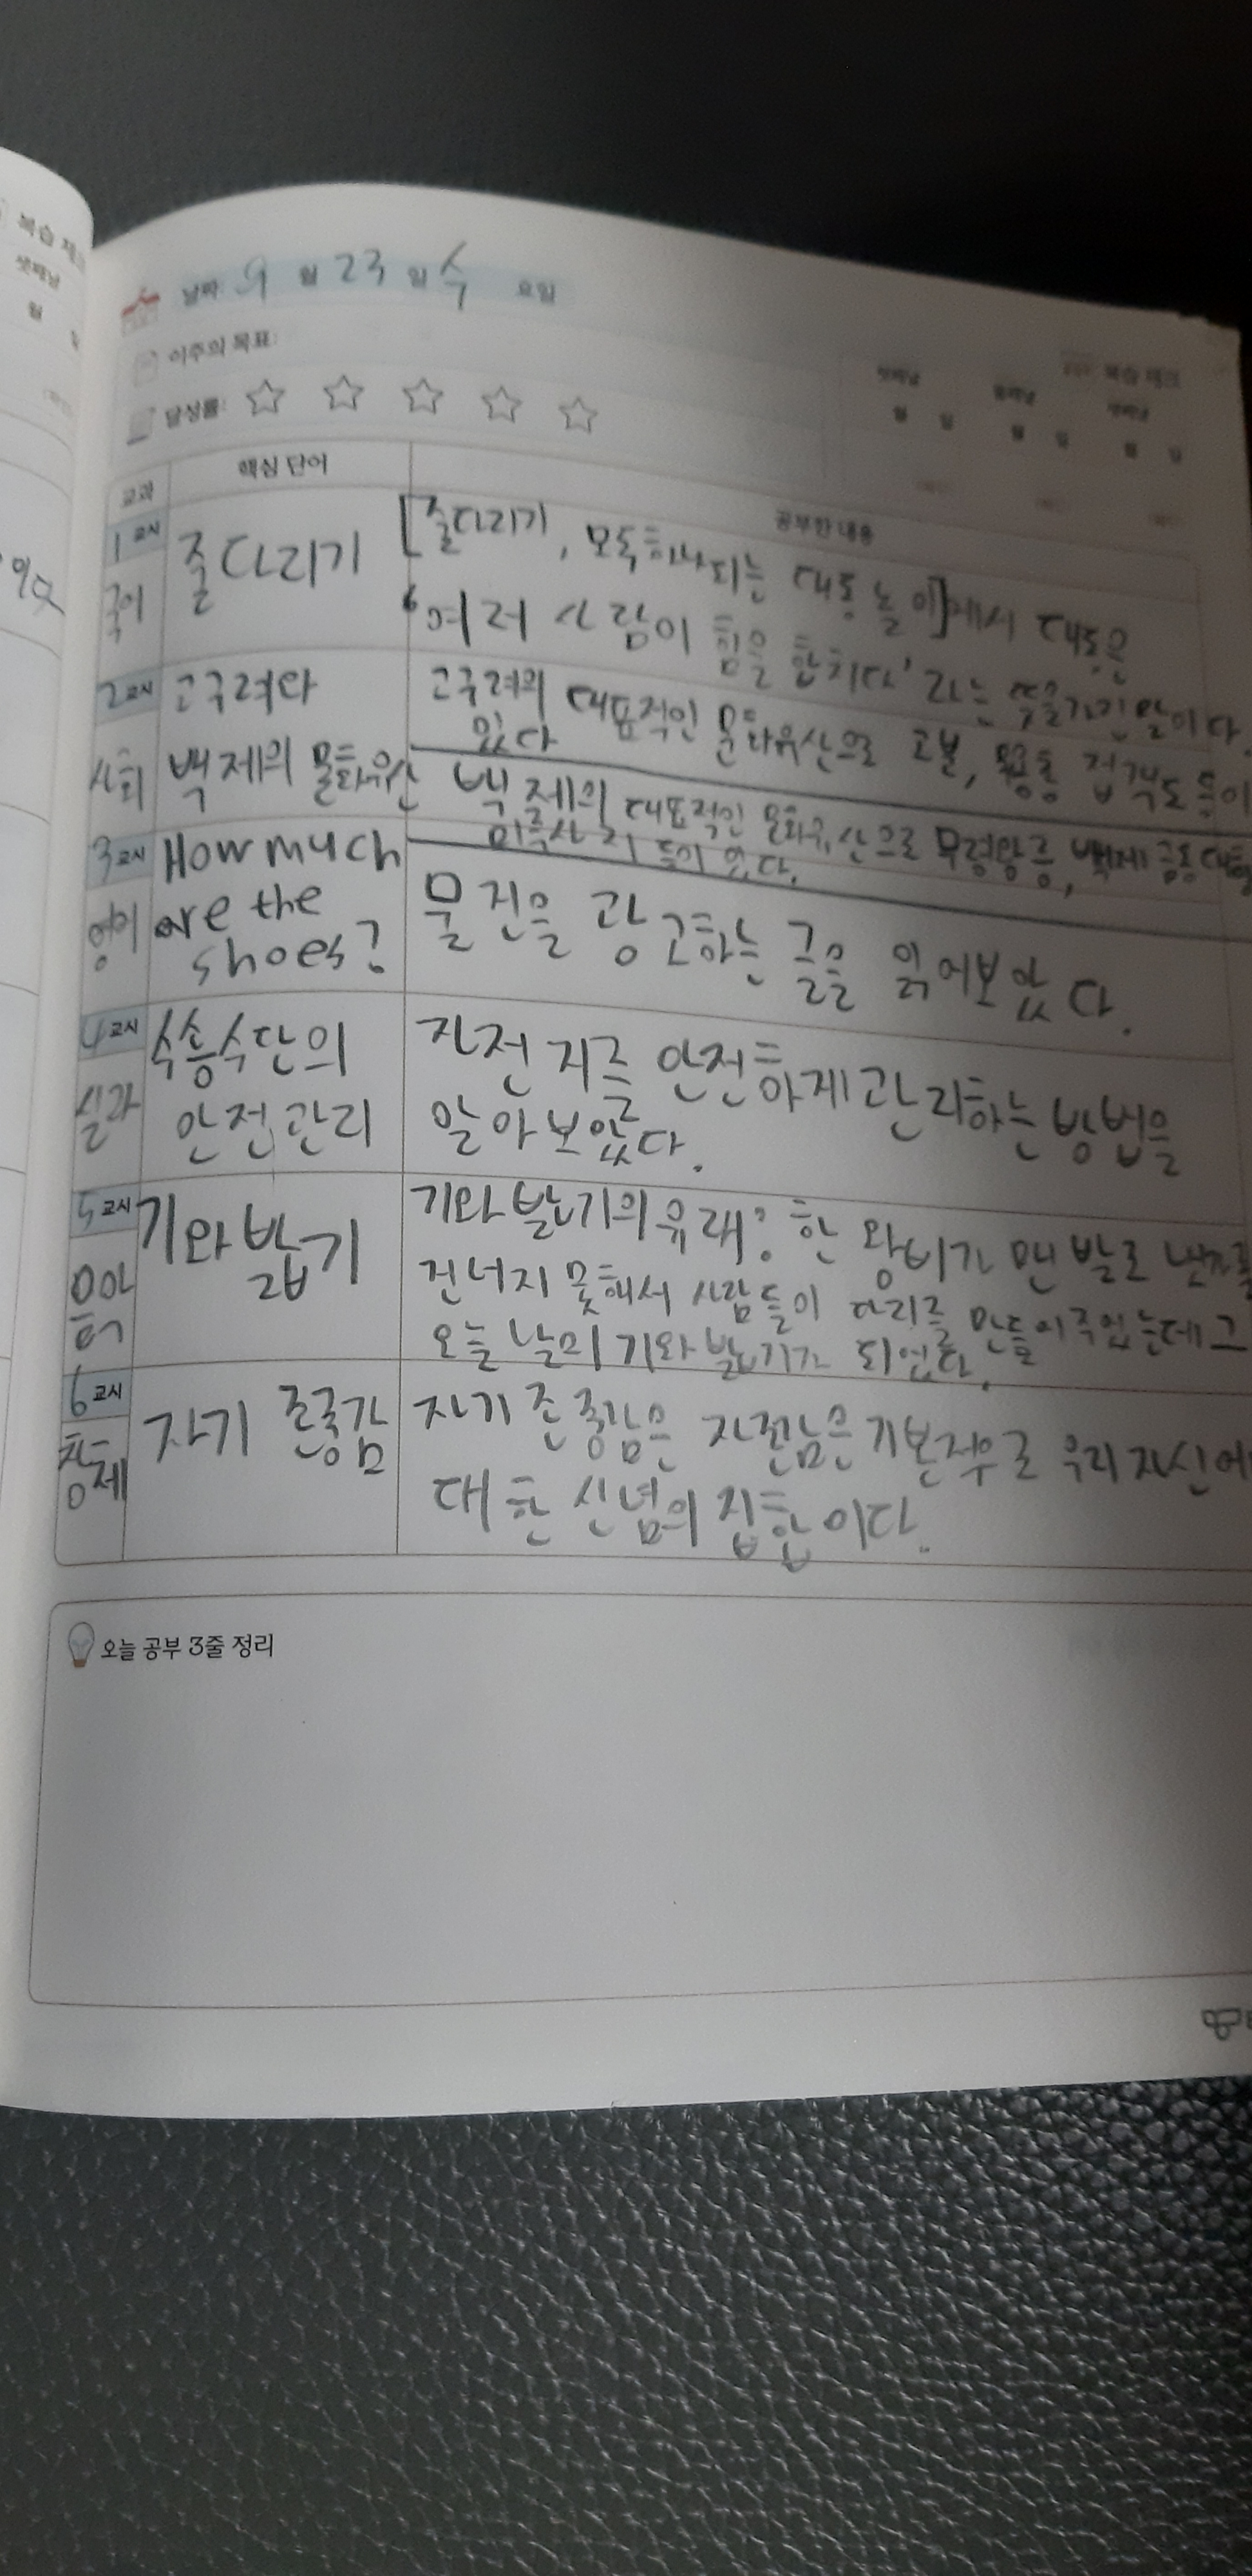 복습 체크
셋째날
월
날짜: 9 월 23 일 수 요일
이주의 목표:
달성률:
복습 체크
첫째날 둘째날 셋째날
월 일 월 일 월 일
교과 핵심 단어 공부한 내용
1교시 국어
줄다리기
[줄다리기, 모두하나되는 대동 놀이]에서 대동은
'여러 사람이 힘을 합치다'라는 뜻을가진말이다.
2교시 사회
고구려와
백제의 문화유산
고구려의 대표적인 문화유산으로 고분, 접객도 등이
있다
백제의 대표적인 문화유산으로 무령왕릉, 백제 금동대향
미륵사 등이 있다.
3교시 영어
How much
are the
shoes?
물건을 광고하는 글을 읽어보았다.
4교시 실과
수송수단의
안전관리
자전거를 안전하게관리하는방법을
알아보았다.
5교시 음악
기와밟기
기와밟기의유래: 한 왕비가 맨발로 냇가를
건너지 못해서 사람들이 다리를 만들어주었는데그
오늘날의 기와밟기가 되었다.
6교시 창체
자기 존중감
자기존중감은 우리자신에
대한 신념의 집합이다.
오늘 공부 3줄 정리